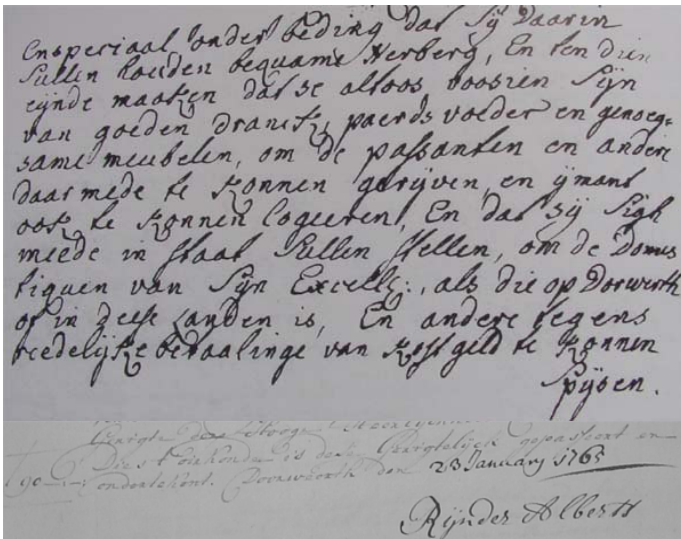 Enspeciaal onder beding dat Sÿ Daarin
Sullen houden bequame Herberg, En ten dien
eÿnde maaken dat se altoos voosien Sÿn
van goeden dranck, paerds voeder en genoeg=
same meubelen, om de passanten en andere
daarmede te konnen gerÿven, en ÿmant
ook te konnen logeeren, En dat sÿ Sigh
meede in staat Sullen stellen, om de Domes
tiquen van Sÿn Excell:, als die op Dorwerth
of in deese Landen is, En andere tegens
reedelÿke betaalinge van kostgeld te konnen
Spÿsen.
Gerigte
is dese Gerigtelÿck gepasseert en
ondertekent. Doorwerth den 23 January 1765
Rÿnder Alberts